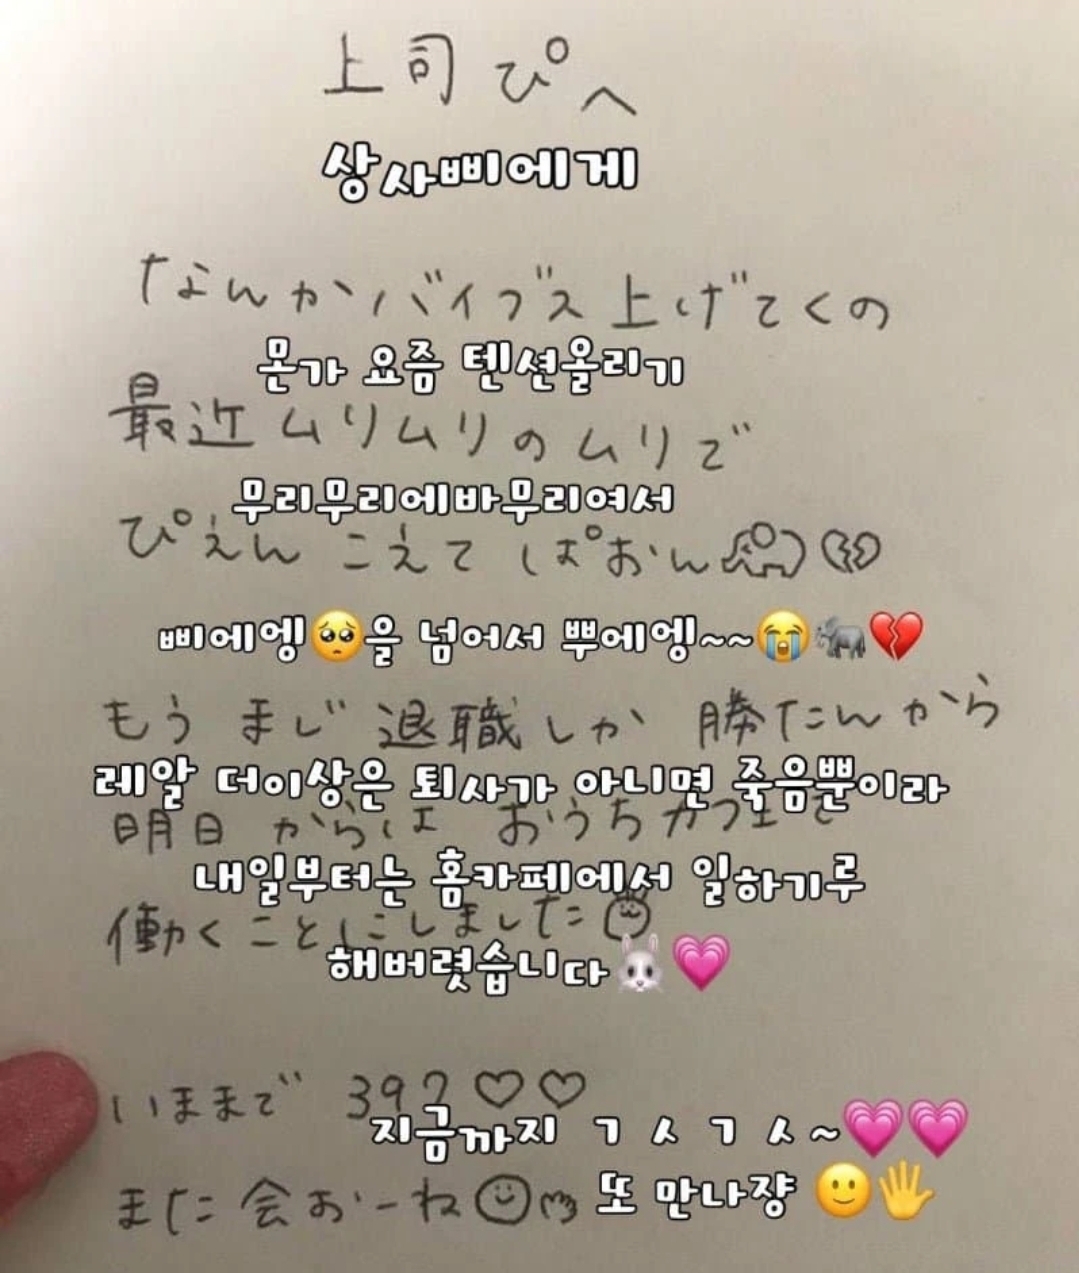 上司ぴへ
상사삐에게
なんかバイブス上げてくの
몬가 요즘 텐션올리기
最近ムリムリのムリで
무리무리에바무리여서
ぴえんこえてぱおん🐘💔
삐에엥🥺을 넘어서 뿌에엥~~😭🐘💔
もうまじ退職しか勝たんから
레알 더이상은 퇴사가 아니면 죽음뿐이라
明日からは おうちカフェで
내일부터는 홈카페에서 일하기루
働くことにしました
해버렸습니다🐰💗
いままで 392♡♡
지금까지 ㄱㅅㄱㅅ~💗💗
また会おーね
또 만나쟝 🙂🖐